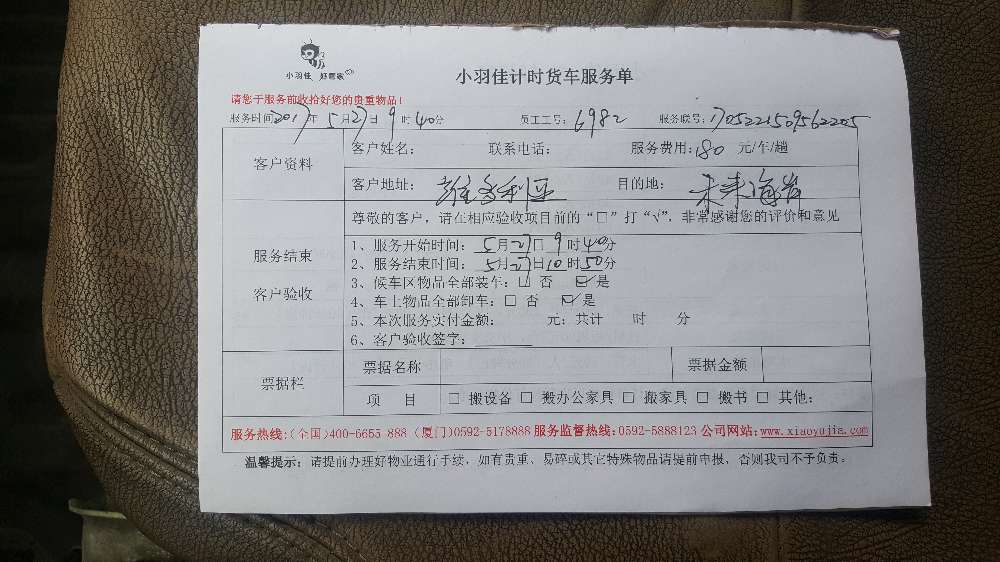 小羽佳 好管家
小羽佳计时货车服务单
请您于服务前收拾好您的贵重物品!
服务时间:2017年5月27日9时40分 员工工号:6982 服务联号:1705221509562205
客户资料
客户姓名: 联系电话: 服务费用:180 元/车/趟
客户地址:维多利亚 目的地:未来海岸
尊敬的客户,请在相应验收项目前的“□”打“√”,非常感谢您的评价和意见
服务结束
客户验收
1、服务开始时间:5月27日9时40分
2、服务结束时间:5月27日10时50分
3、候车区物品全部装车:□ 否 ☑是
4、车上物品全部卸车:□ 否 ☑是
5、本次服务实付金额: 元;共计 时 分
6、客户验收签字:
票据栏
票据名称 票据金额
项 目 □ 搬设备 □ 搬办公家具 □ 搬家具 □ 搬书 □ 其他:
服务热线:(全国)400-6655 888 (厦门)0592-5178888 服务监督热线:0592-5888123 公司网站:www.xiaoyujia.com
温馨提示:请提前办理好物业通行手续,如有贵重、易碎或其它特殊物品请提前申报,否则我司不予负责。